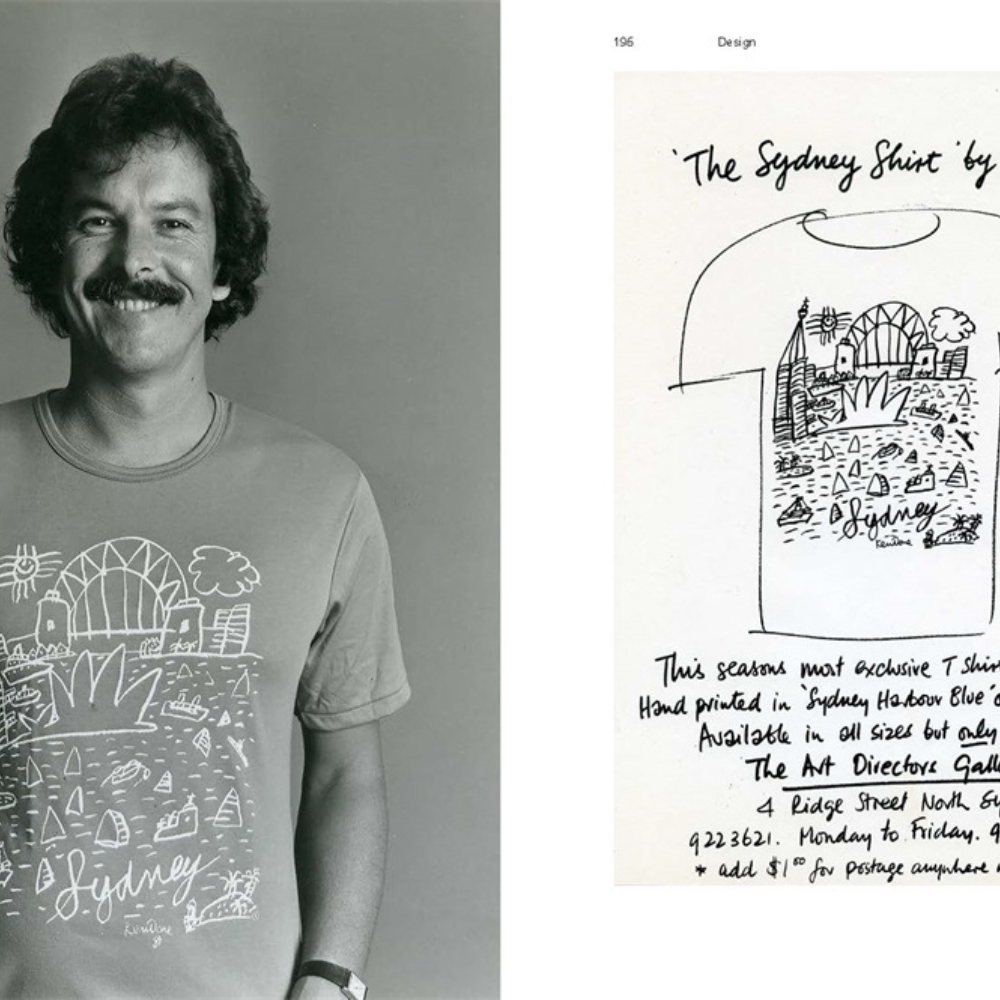 Sydney
Ken Done
81
196 Design
'The Sydney Shirt' by
Sydney
Ken Done
This seasons most exclusive T Shir
Hand printed in 'Sydney Harbour Blue' o
Available in all sizes but only
The Art Directors Gall
4 Ridge Street North Sy
9223621. Monday to Friday. 9
* add $1.00 for postage anywhere